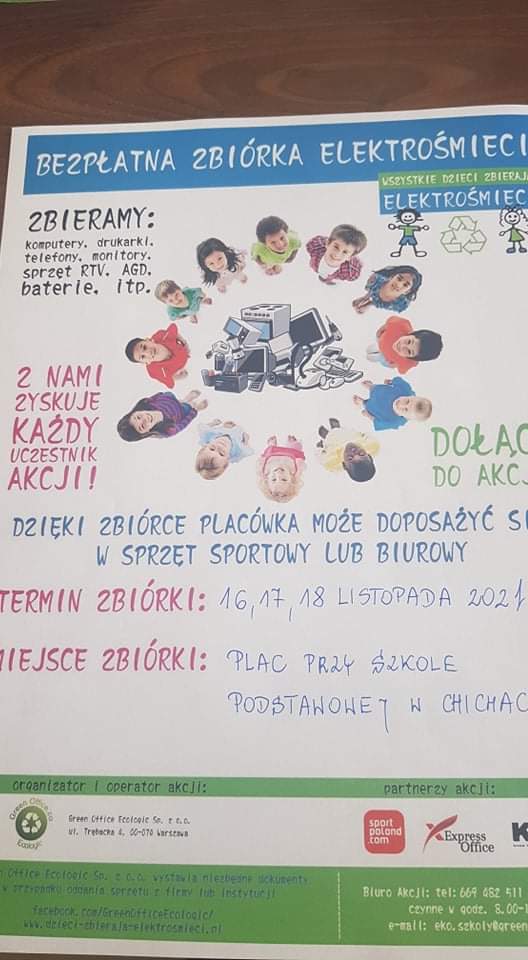 BEZPŁATNA ZBIÓRKA ELEKTROŚMIECI
WSZYSTKIE DZIECI ZBIERAJĄ
ELEKTROŚMIEC
ZBIERAMY:
komputery, drukarki,
telefony, monitory,
sprzęt RTV, AGD,
baterie, itp.
Z NAMI
ZYSKUJE
KAŻDY
UCZESTNIK
AKCJI!
DOŁĄC
DO AKCJ
DZIĘKI ZBIÓRCE PLACÓWKA MOŻE DOPOSAŻYĆ SI
W SPRZĘT SPORTOWY LUB BIUROWY
TERMIN ZBIÓRKI: 16, 17, 18 LISTOPADA 2021
MIEJSCE ZBIÓRKI: PLAC PRZY SZKOLE
PODSTAWOWEJ W CHICHAC
organizator i operator akcji:
partnerzy akcji:
Green Office
Ecologic
Green Office Ecologic Sp. z o.o.
ul. Trębacka 4, 00-070 Warszawa
sport
poland
.com
Express
Office
Office Ecologic Sp. z o.o. wystawia niezbędne dokumenty
w przypadku oddania sprzętu z firmy lub instytucji
facebook.com/GreenOfficeEcologic/
www.dzieci-zbieraja-elektrosmieci.pl
Biuro Akcji: tel: 669 482 511
czynne w godz. 8.00-1
e-mail: eko.szkoly@green